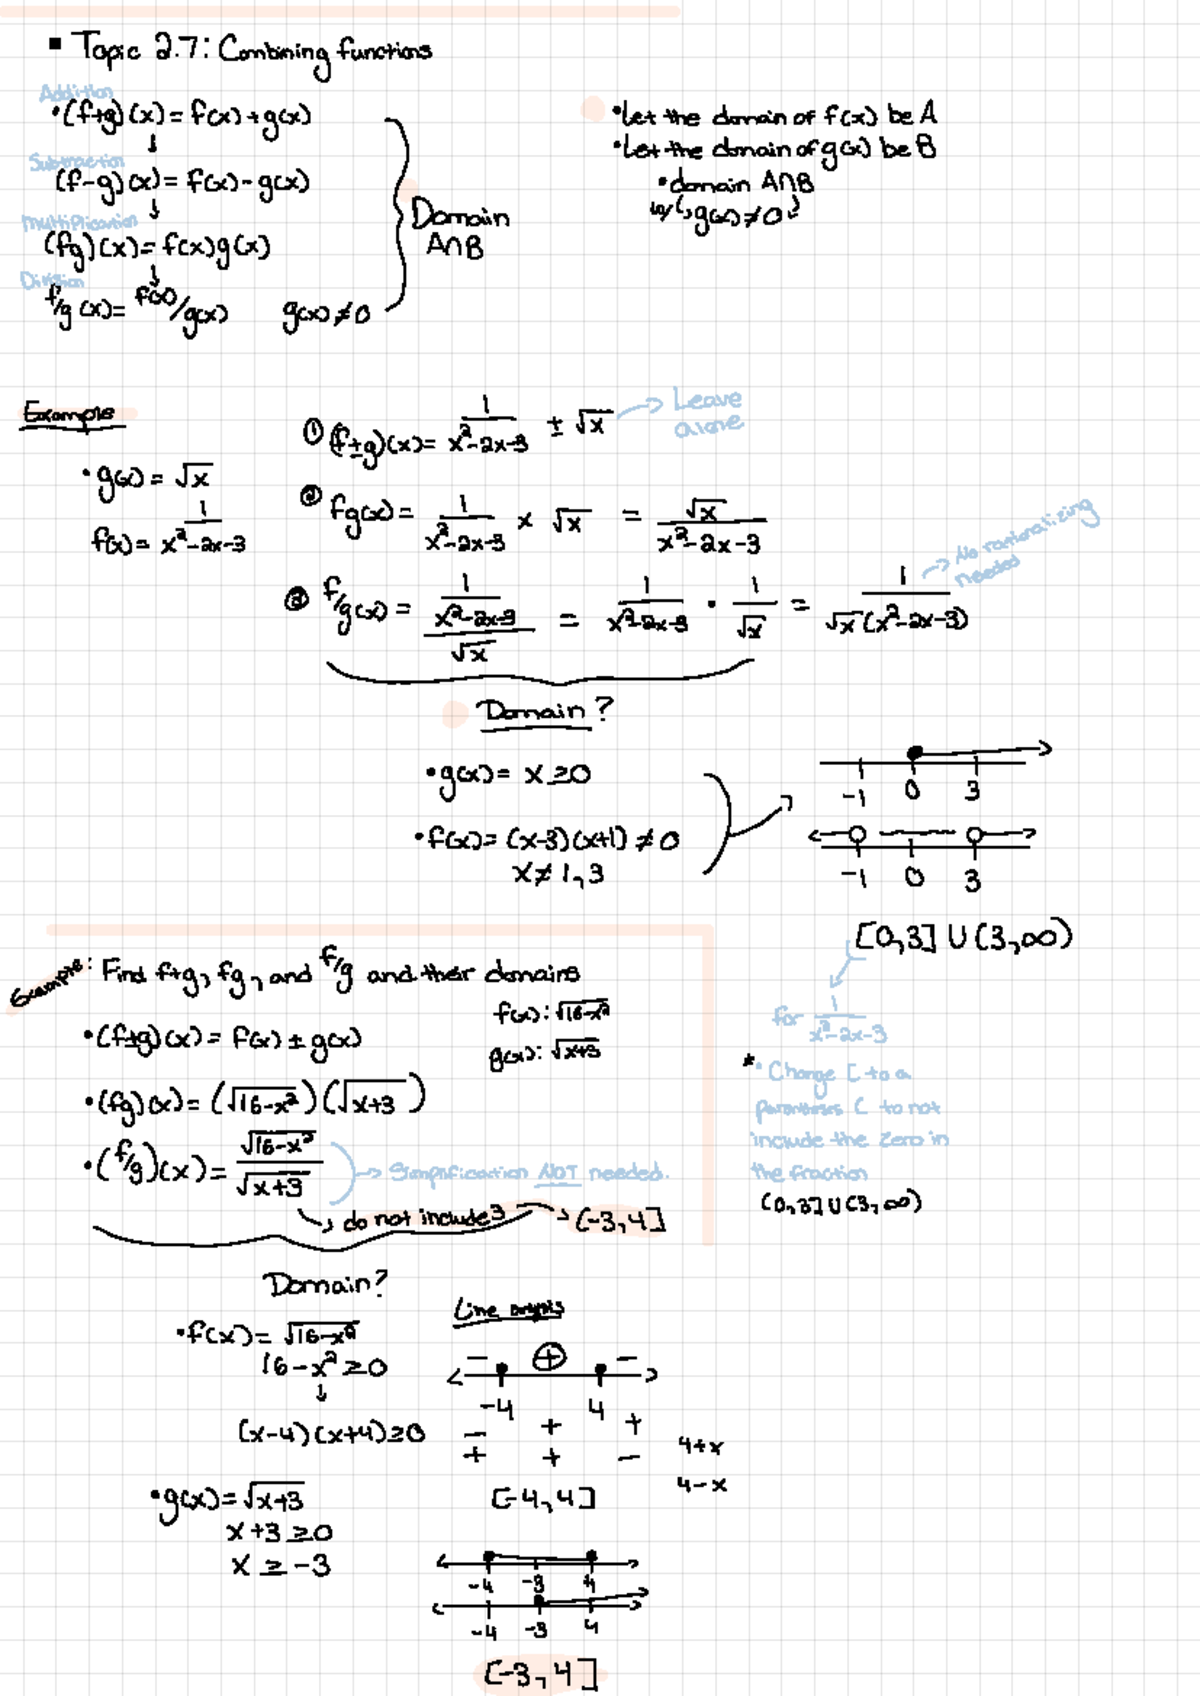 ▪ Topic 2.7: Combining functions
Addition
•(f+g)(x)=f(x)+g(x)
↓
Subtraction
(f-g)(x)=f(x)-g(x)
↓
Multiplication
(fg)(x)=f(x)g(x)
↓
Division
f/g(x)=f(x)/g(x) g(x)≠0
Domain
A∩B
•Let the domain of f(x) be A
•Let the domain of g(x) be B
•domain A∩B
w/(,g(x)≠0)
Example
•g(x)=√x
f(x)=1/x²-2x-3
① (f±g)(x)=1/x²-2x-3 ± √x → Leave
alone
② fg(x)=1/x²-2x-3 x √x = √x/x²-2x-3
③ f/g(x)=1/x²-2x-3/√x = 1/x²-2x-3 • 1/√x = 1/√x(x²-2x-3) → No rationalizing
needed
Domain?
•g(x)= x≥0
•f(x)=(x-3)(x+1)≠0
x≠1,3
-1 0 3
-1 0 3
[0,3]∪(3,∞)
for 1/x²-2x-3
*• Change [ to a
parentheses ( to not
include the zero in
the fraction
(0,3]∪(3,∞)
Example: Find f+g, fg, and f/g and their domains
f(x):√16-x²
g(x):√x+3
•(f±g)(x)=f(x)±g(x)
•(fg)(x)=(√16-x²)(√x+3)
•(f/g)(x)=√16-x²/√x+3 → Simplification NOT needed.
→ do not include 3 → (-3,4]
Domain?
•f(x)=√16-x²
16-x²≥0
↓
(x-4)(x+4)≥0
•g(x)=√x+3
x+3≥0
x≥-3
Line analysis
- ⊕ -
-4 4
- + +
+ + -
4+x
4-x
[-4,4]
-4 -3 4
-4 -3 4
[-3,4]